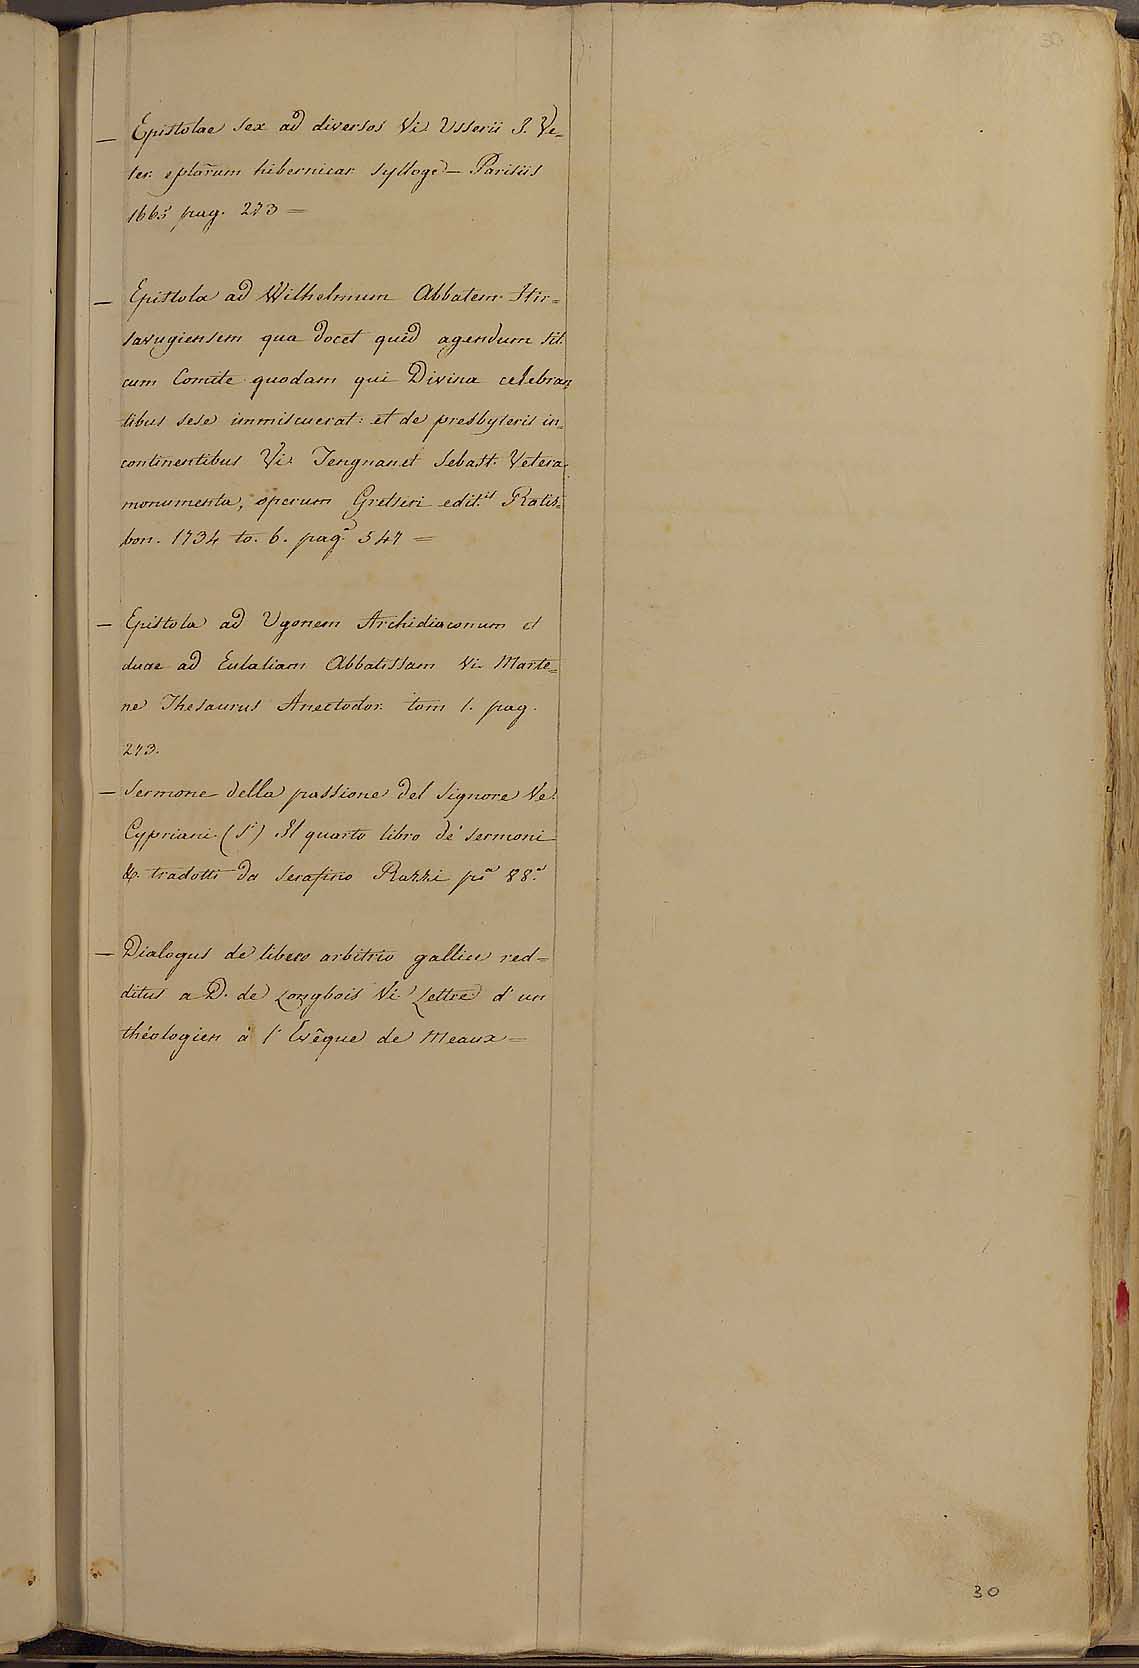 30
— Epistolae sex ad diversos Vi. Usserii J. Ve=
ter. eplarum hibernicar. sylloge — Parisiis
1665 pag. 273 =
— Epistola ad Wilhelmum Abbatem Hir=
saugiensem qua docet quid agendum sit
cum Comite quodam qui Divina celebran
tibus sese immiscuerat: et de presbyteris in=
continentibus Vi. Tengnanel Sebast. Vetera
monumenta, operum Gretseri edit.is Ratis=
bon. 1734 to. 6. pag.a 547 =
— Epistola ad Ugonem Archidiaconum et
duae ad Eulaliam Abbatissam Vi. Marte=
ne Thesaurus Anectodor. tom 1. pag.
273.
— Sermone della passione del Signore Ve.
Cypriani (S.i) Il quarto libro de' sermoni
&. tradotti da Serafino Razzi p.a 88.a
— Dialogus de libero arbitrio gallice red=
ditus a D. de Longbois Vi. Lettre d'un
théologien à l'Evêque de Meaux =
30